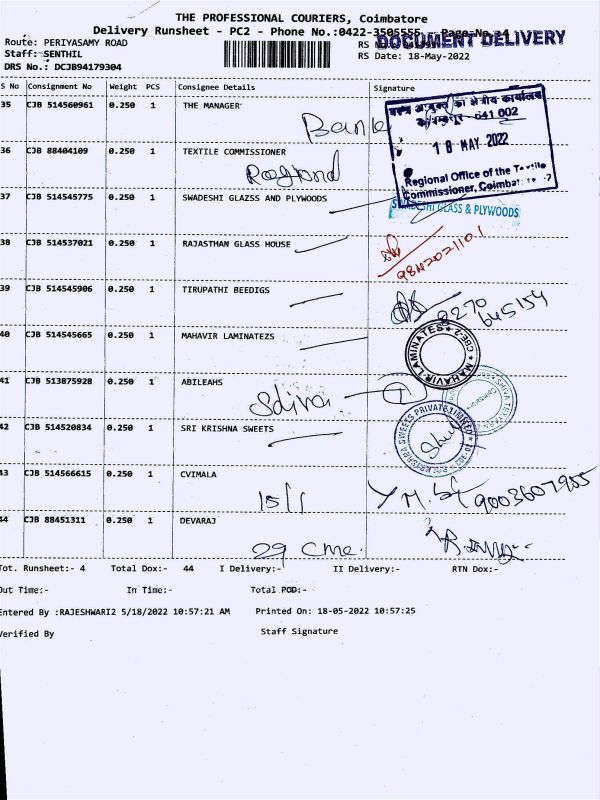 THE PROFESSIONAL COURIERS, Coimbatore
Delivery Runsheet - PC2 - Phone No.:0422-3505555 Page No 4
DOCUMENT DELIVERY
Route: PERIYASAMY ROAD
Staff: SENTHIL
RS Date: 18-May-2022
DRS No.: DCJB94179304
S No Consignment No Weight PCS Consignee Details Signature
35 CJB 514560961 0.250 1 THE MANAGER
Bank
का क्षेत्रीय कार्यालय
641 002
18 MAY 2022
Regional Office of the Textile
Commissioner, Coimbat
36 CJB 88404109 0.250 1 TEXTILE COMMISSIONER
37 CJB 514545775 0.250 1 SWADESHI GLAZSS AND PLYWOODS
SWADESHI GLASS & PLYWOODS
38 CJB 514537021 0.250 1 RAJASTHAN GLASS HOUSE
39 CJB 514545906 0.250 1 TIRUPATHI BEEDIGS
40 CJB 514545665 0.250 1 MAHAVIR LAMINATEZS
MAHAVIR LAMINATES ★ CBE-2 ★
41 CJB 513875928 0.250 1 ABILEAHS
42 CJB 514520834 0.250 1 SRI KRISHNA SWEETS
SWEETS PRIVATE LIMITED
43 CJB 514566615 0.250 1 CVIMALA
9003607955
44 CJB 88451311 0.250 1 DEVARAJ
29
Tot. Runsheet:- 4 Total Dox:- 44 I Delivery:- II Delivery:- RTN Dox:-
Out Time:- In Time:- Total POD:-
Entered By :RAJESHWARI2 5/18/2022 10:57:21 AM Printed On: 18-05-2022 10:57:25
Verified By Staff Signature